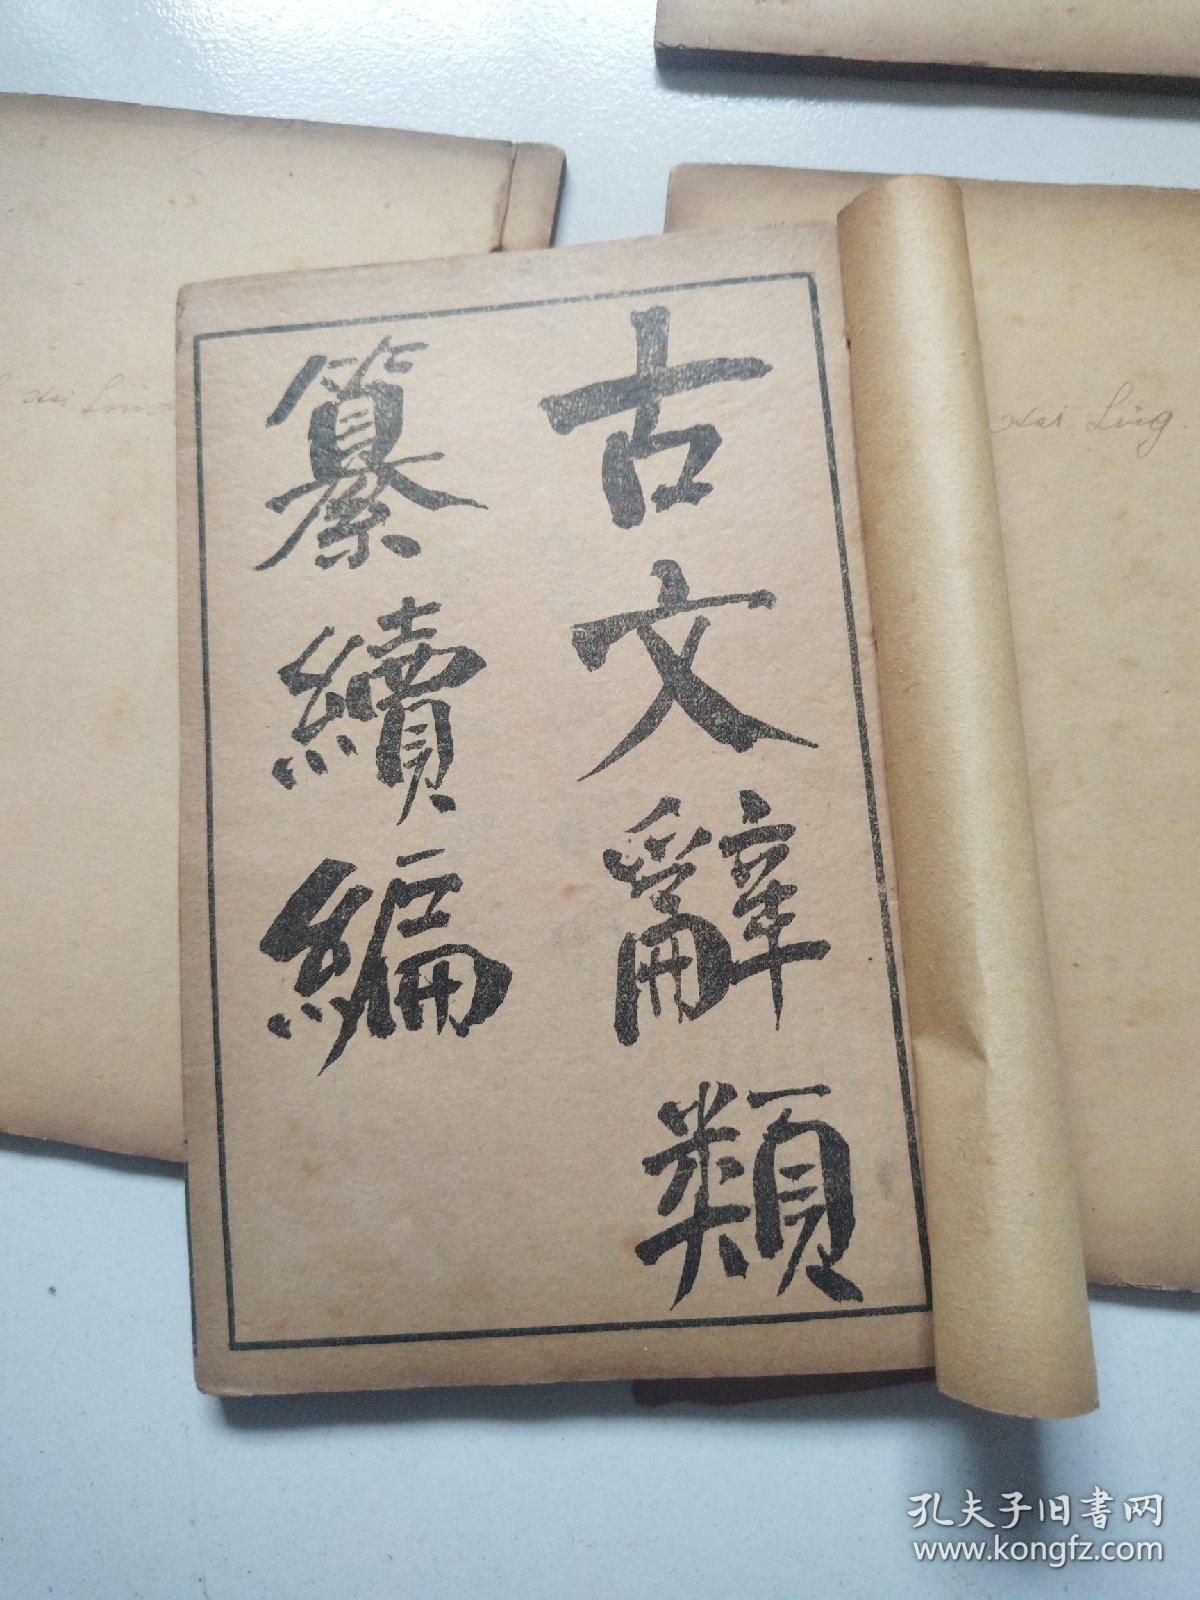 古文辭類
纂續編
Hsi Ling.
孔夫子旧书网
www.kongfz.com